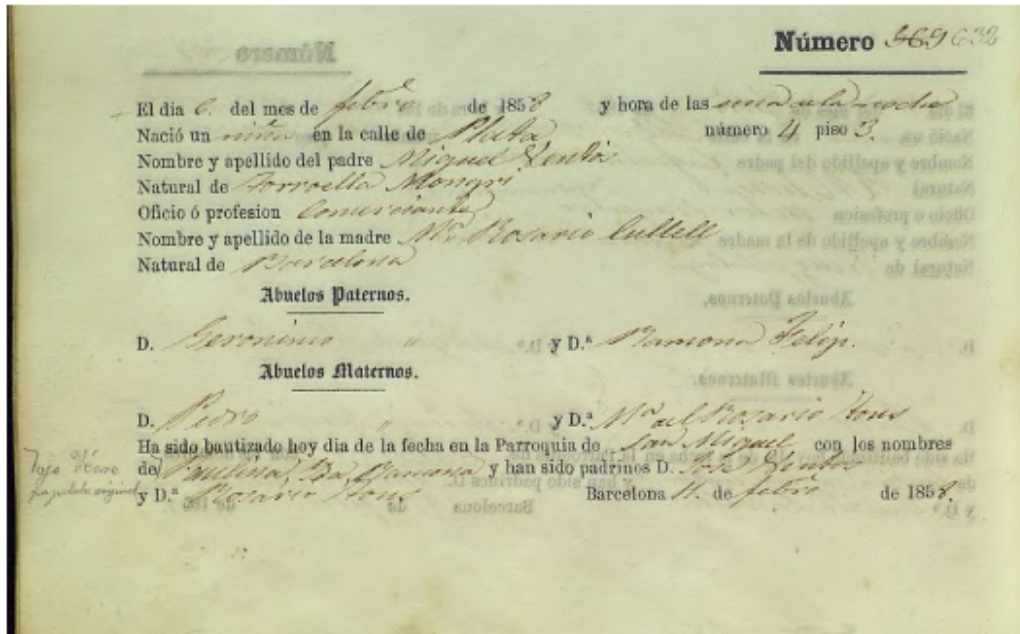 Número 569 632
El dia 6. del mes de febro de 1858 y hora de las una de la noche
Nació un niña en la calle de Plata número 4 piso 3.
Nombre y apellido del padre Miguel Ventós
Natural de Torroella Mongri
Oficio ó profesion Comerciante
Nombre y apellido de la madre Mª Rosario Cullell
Natural de Barcelona
Abuelos Paternos.
D. Geronimo " y D.ª Ramona Felip.
Abuelos Maternos.
D. Pedro " y D.ª Mª del Rosario Hons
Ha sido bautizado hoy dia de la fecha en la Parroquia de San Miguel con los nombres
de Paulina, Ramona y han sido padrinos D. José Ventós
papeleta original
y D.ª Rosario Hons Barcelona 11. de febro de 1858.